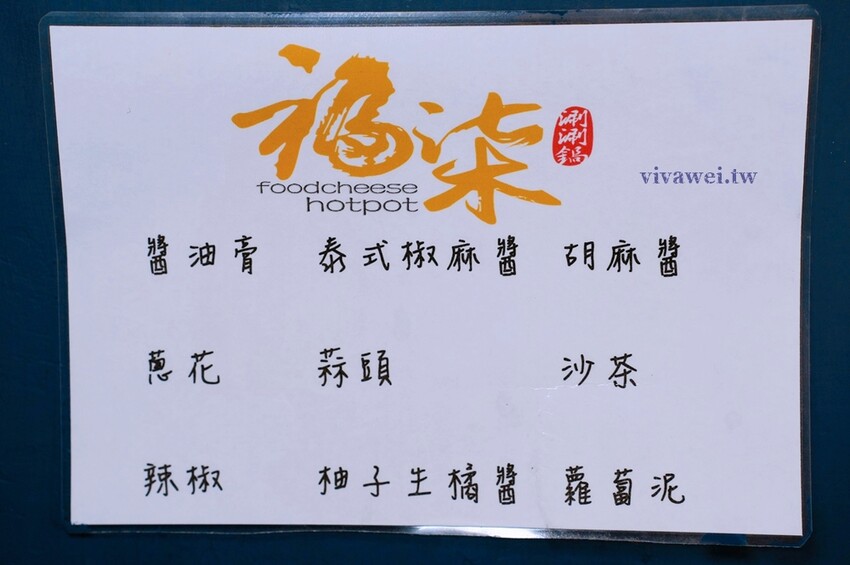 福柒
涮涮鍋
foodcheese
hotpot
vivawei.tw
醬油膏 泰式椒麻醬 胡麻醬
蔥花 蒜頭 沙茶
辣椒 柚子生橘醬 蘿蔔泥